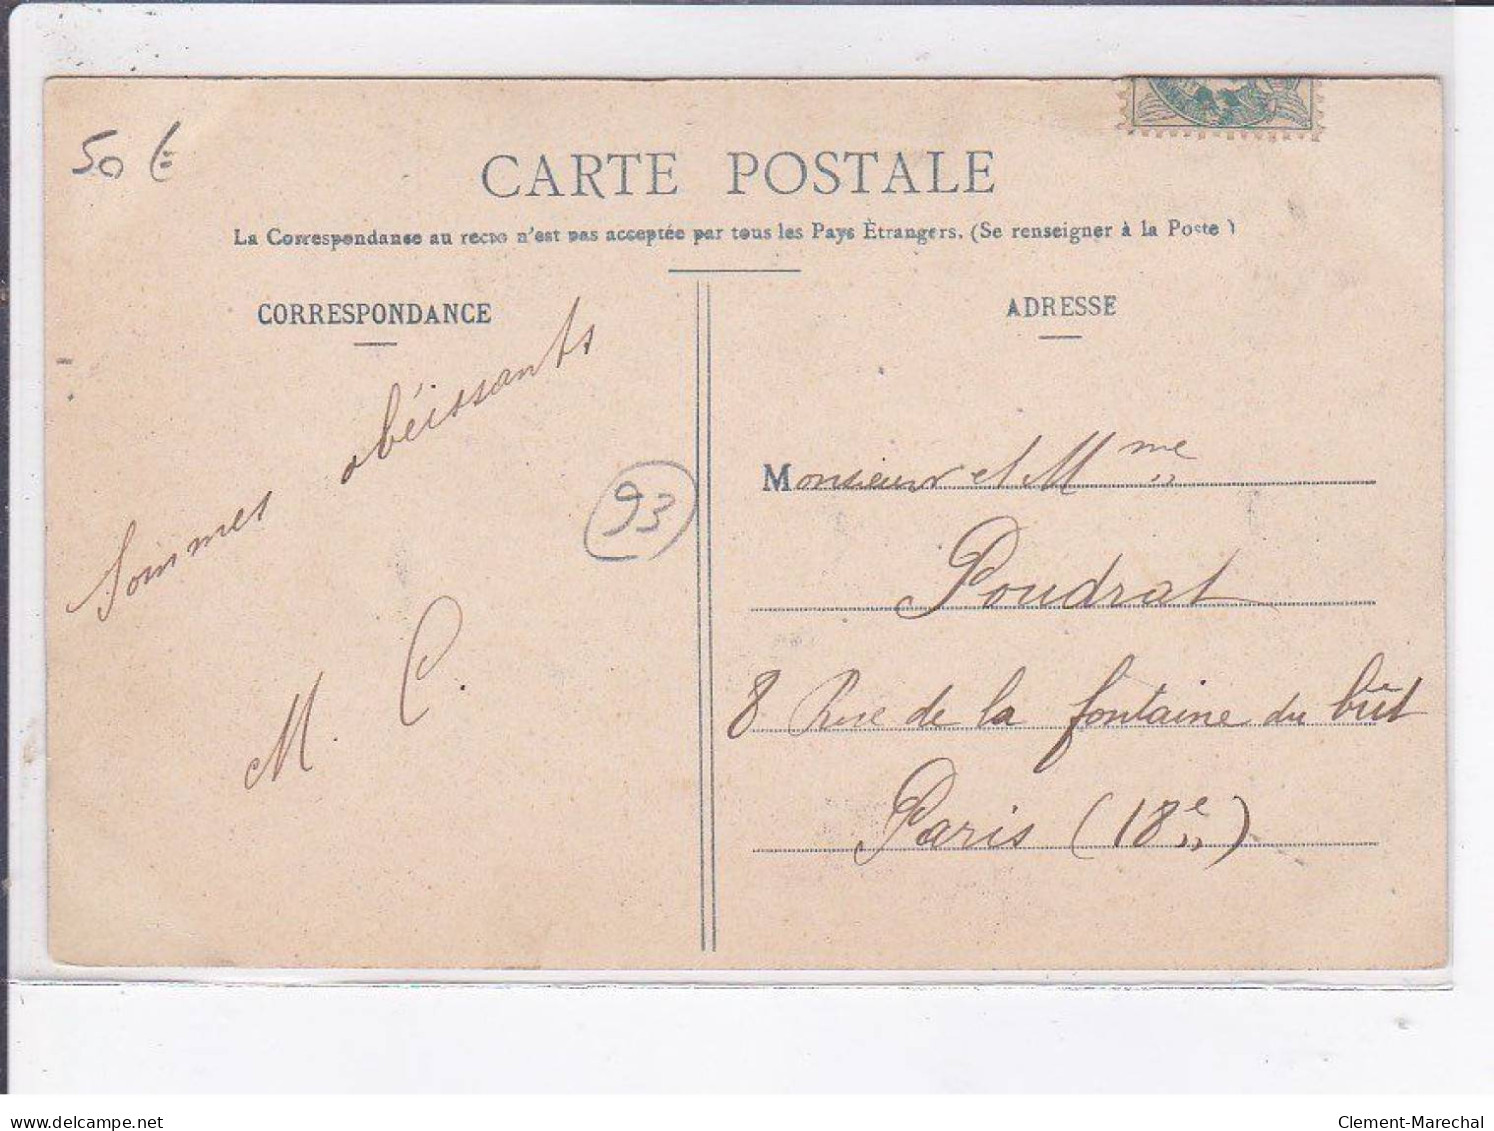 50 €
CARTE POSTALE
La Correspondance au recto n'est pas acceptée par tous les Pays Étrangers. (Se renseigner à la Poste)
CORRESPONDANCE
ADRESSE
Sommes obéissants
M. C.
93
Monsieur et Mme
Poudrat
8 Rue de la fontaine du bût
Paris (18e)
www.delcampe.net
Clement-Marechal